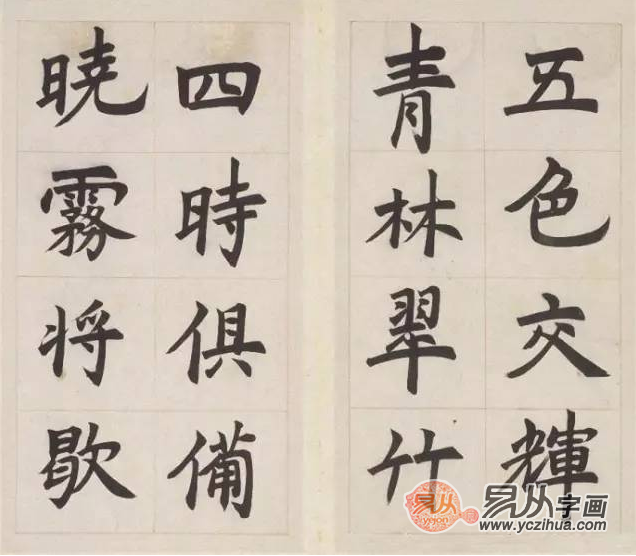 五色交輝
青林翠竹
四時俱備
曉霧將歇
易从字画
www.yczihua.com